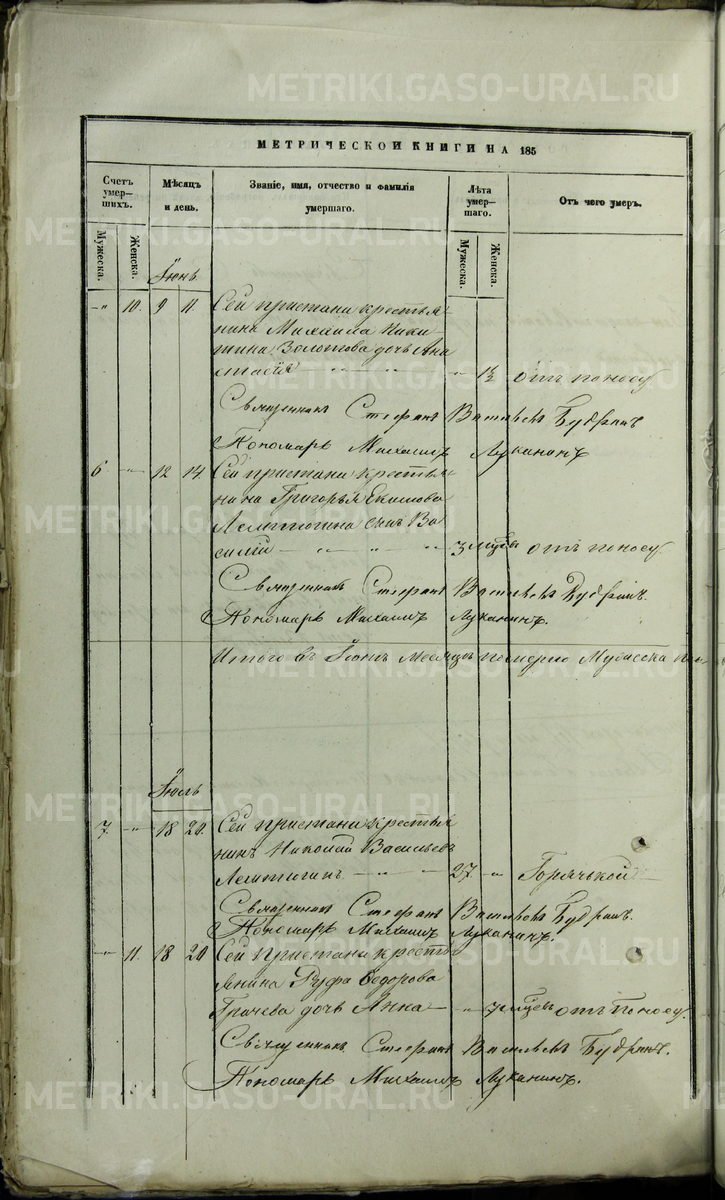 МЕТРИЧЕСКОЙ КНИГИ НА 185
Счетъ умершихъ.
Мѣсяцъ и день.
Званіе, имя, отчество и фамилія умершаго.
Лѣта умершаго.
Отъ чего умеръ.
Мужеска. Женска. Мужеска. Женска.
Іюнь
-"- 10. 9 11. Сей пристани крестья-
нина Михаила Ники-
тина Золотова дочь Ана
стасія " 1½ отъ поносу
Священникъ Стефанъ Васильевъ
Пономарь Михаилъ Луканинъ
6 -"- 12 14. Сей пристани крестья-
нина Григорья Екимова
сынъ Ва
силій 3 отъ поносу.
Священникъ Стефанъ Васильевъ
Пономарь Михаилъ Луканинъ.
Итого въ Іюнѣ померло Мужеска
Іюль
7. -"- 18 20. Сей пристани крестья
нинъ Николай Васильевъ
27 -"- Горячькой
Священникъ Стефанъ Васильевъ
Пономарь Михаилъ Луканинъ.
-"- 11. 18 20 Сей пристани кресть
янина Руфа Ѳедорова
Грачева дочь Анна " отъ поносу.
Священникъ Стефанъ Васильевъ
Пономарь Михаилъ Луканинъ.
METRIKI.GASO-URAL.RU